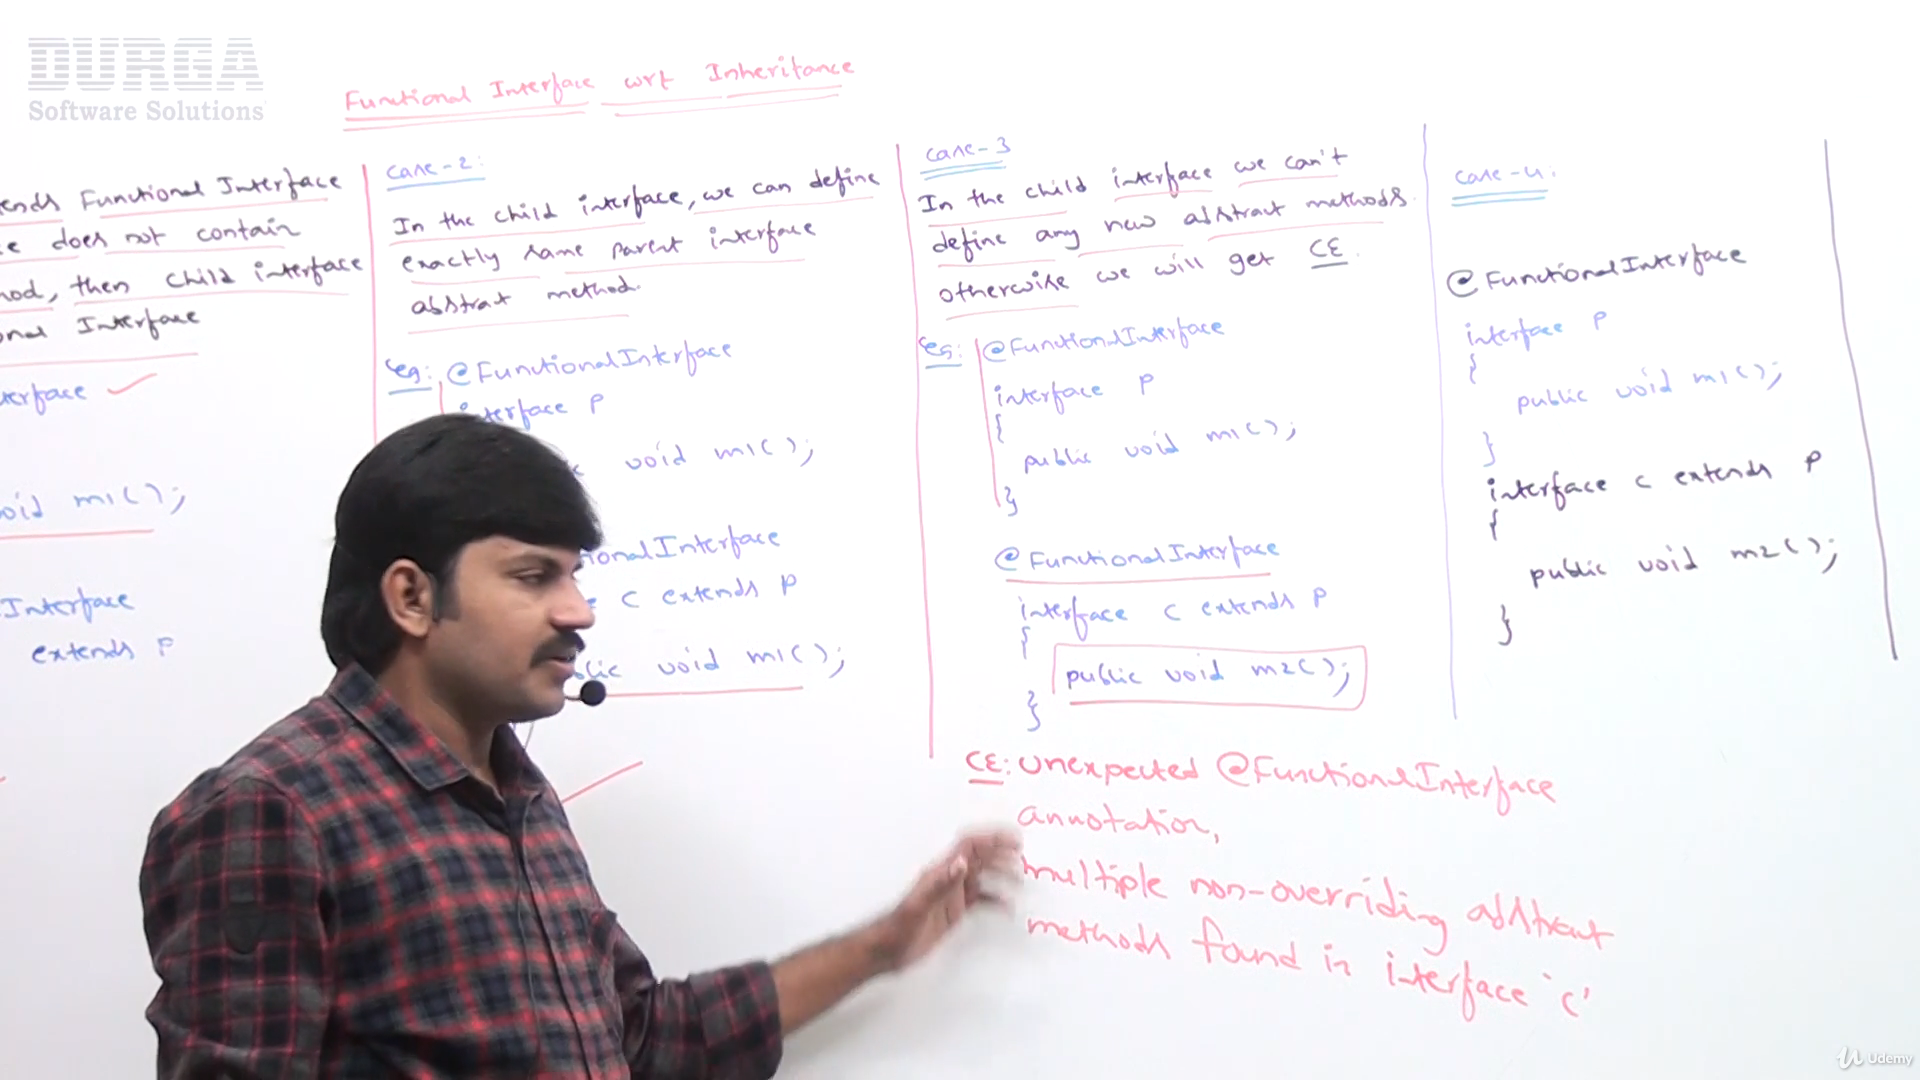 DURGA
Software Solutions
Functional Interface wrt Inheritance
Functional Interface
does not contain
then child interface
Interface
void m1();
Interface
extends P
case-2:
In the child interface, we can define
exactly same parent interface
abstract method.
eg: @FunctionalInterface
interface P
void m1();
C extends P
void m1();
case-3
In the child interface we can't
define any new abstract methods.
otherwise we will get CE
eg: @FunctionalInterface
interface P
{
public void m1();
}
@FunctionalInterface
interface C extends P
{
public void m2();
}
CE: unexpected @FunctionalInterface
annotation,
multiple non-overriding abstract
methods found in interface 'C'
case-4:
@FunctionalInterface
interface P
{
public void m1();
}
interface C extends P
{
public void m2();
}
Udemy